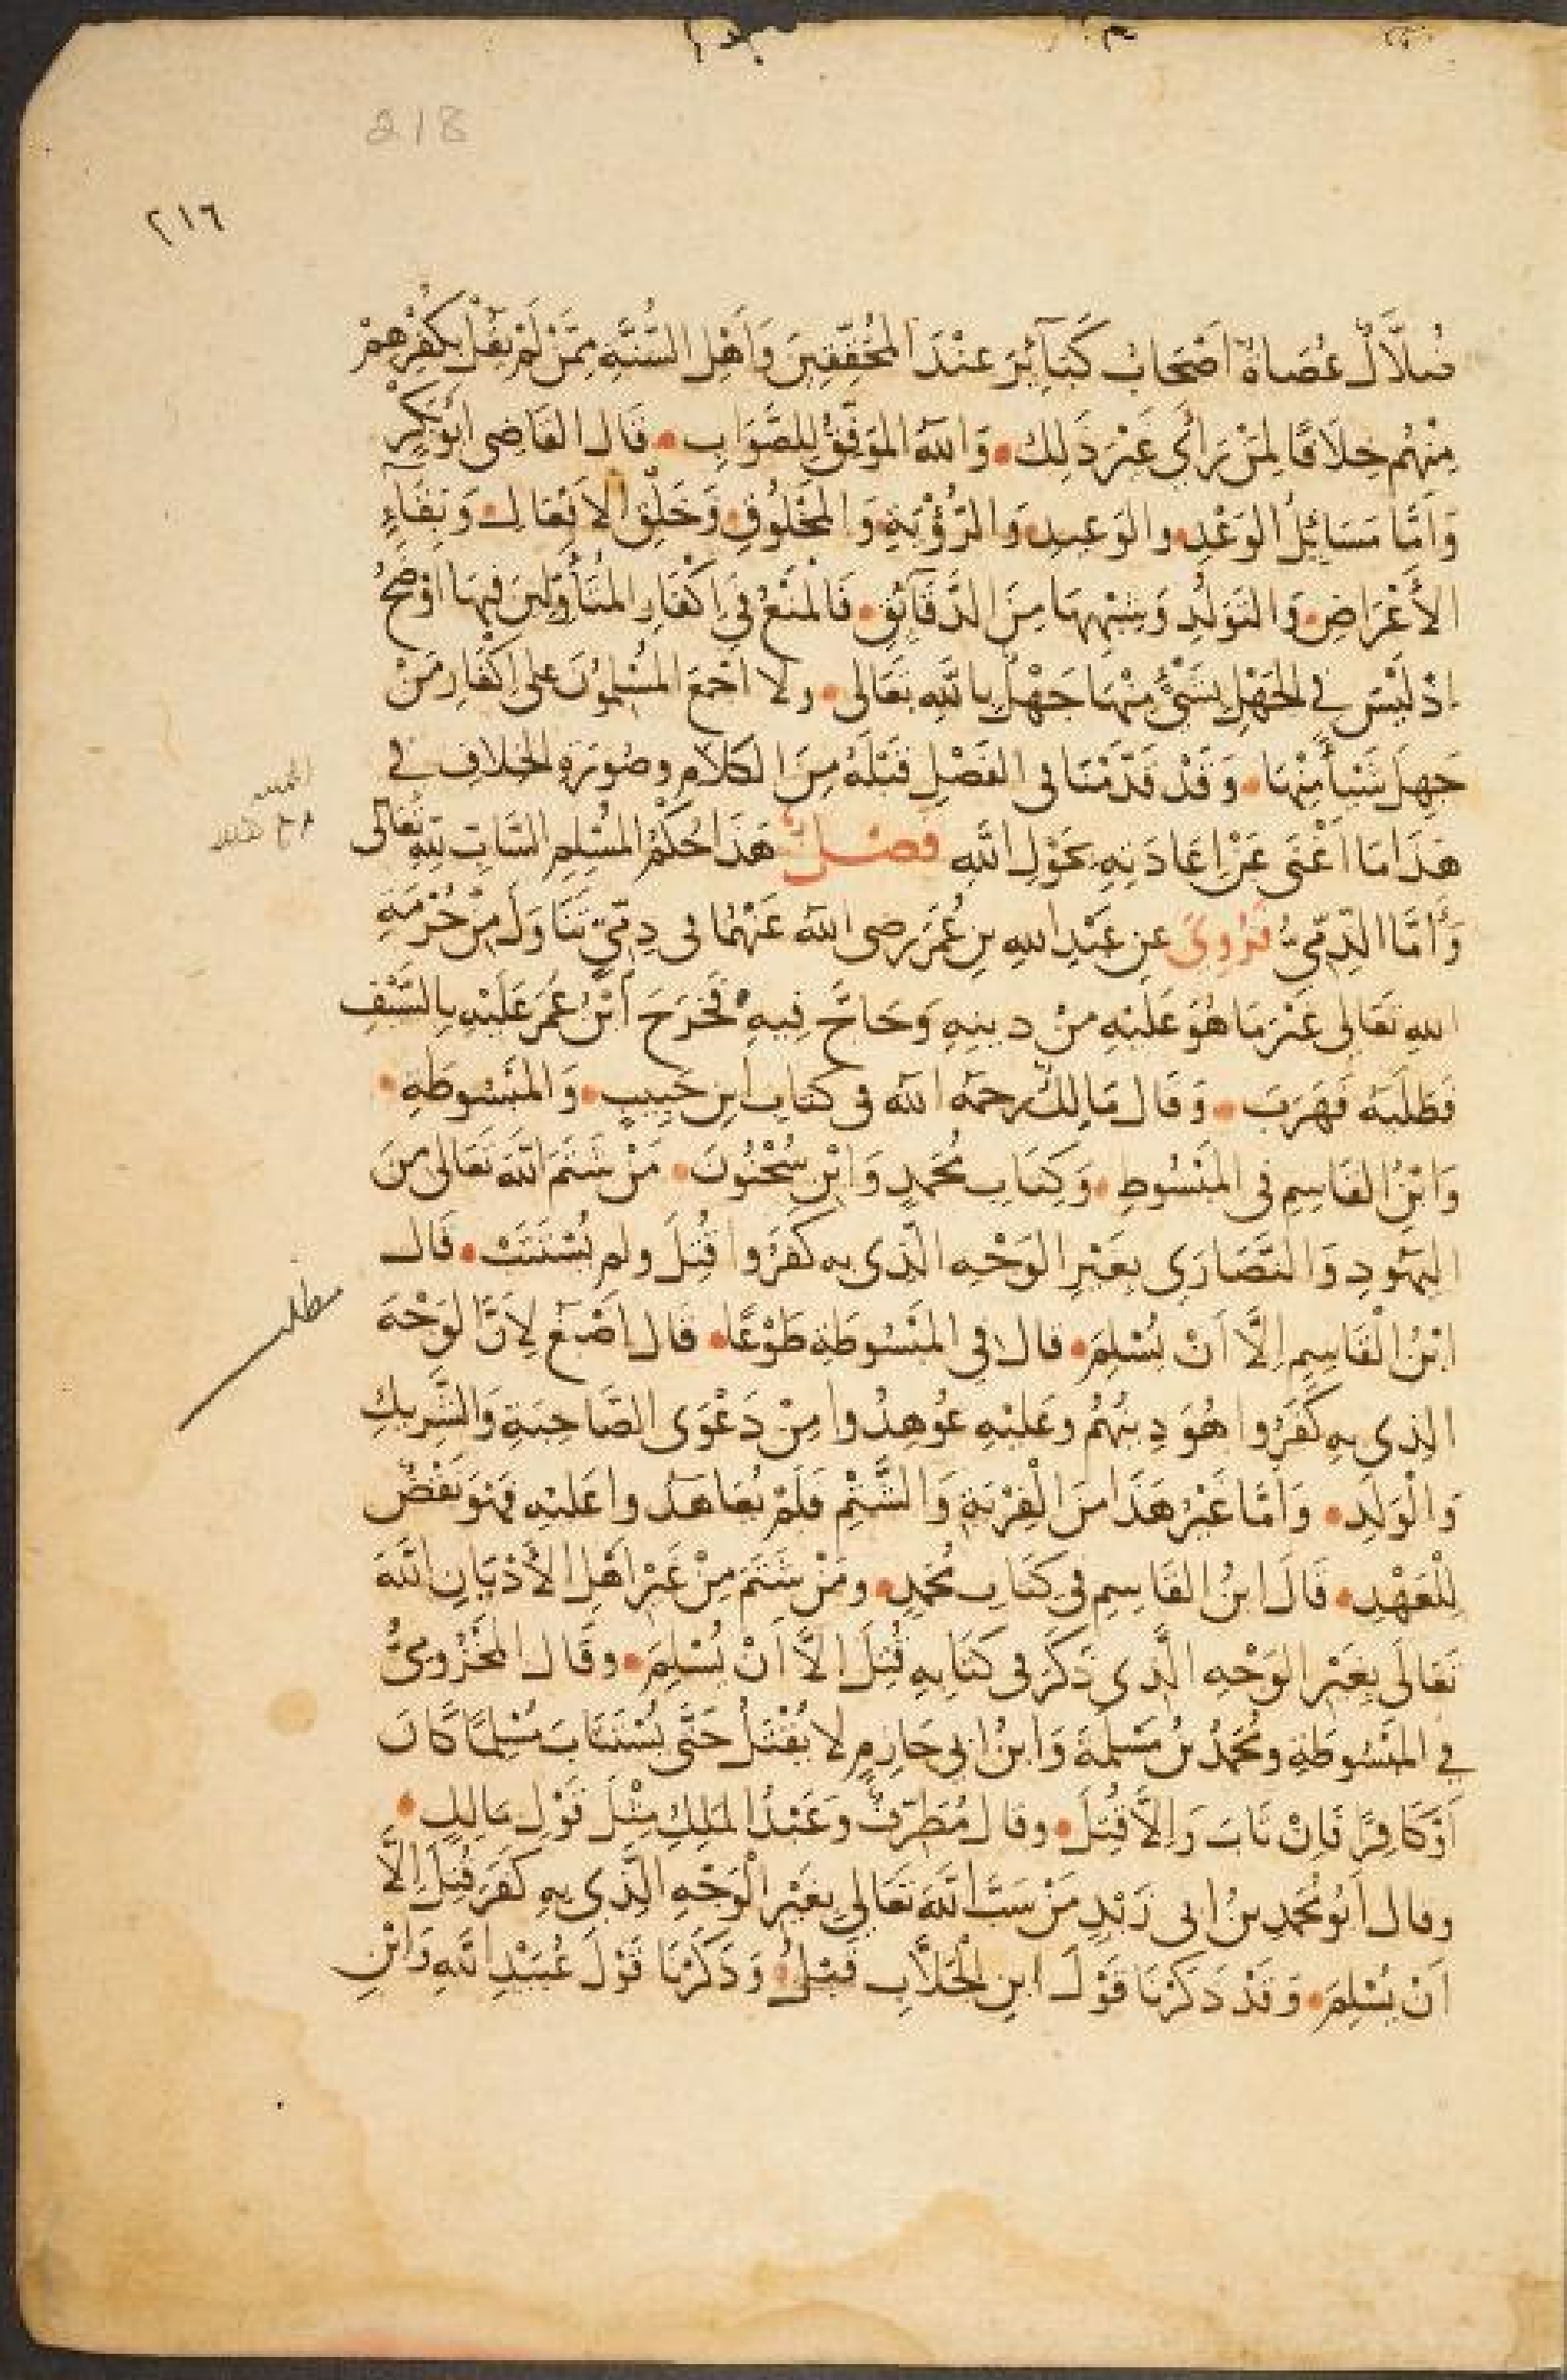 218
٢١٦
ضُلَّالٌ عُصَاةٌ اَصْحَابُ كَبَآئِرَ عِنْدَ المُحَقِّقِينَ وَاَهْلِ السُّنَّةِ مِمَّنْ لَمْ يَقُلْ بِكُفْرِهِمْ
مِنْهُم خِلَافًا لِمَنْ رَاَى غَيْرَ ذَلِكَ • وَاللهُ المُوَفِّقُ لِلصَّوَابِ • قَالَ القَاضِى اَبُو بَكْرٍ
وَاَمَّا مَسَايِلُ الوَعْدِ • والوَعِيدِ • وَالرُّؤْيَةِ • وَالمَخْلُوقِ • وَخَلْقِ الاَفْعَالِ • وَبَقَآءِ
الأَعْرَاضِ • وَالتَوَلُّدِ وَشِبْهِهَا مِنَ الدَّقَآئِقِ • فَالْمَنْعُ فِى اِكْفَارِ المُتَأَوِّلِينَ فِيهَا اَوْضَحُ
اِذْ لَيْسَ فِى الجَهْلِ بِشَىْءٍ مِنْهَا جَهْلٌ بِاللهِ تَعَالى • ولا اَجْمَعَ المُسْلِمُونَ على اِكْفَارِ مَنْ
جَهِلَ شَيْأً مِنْهَا • وَقَدْ قَدَّمْنَا فى الفَصْلِ قَبْلَهُ مِنَ الكَلامِ وصُورَةِ الخِلافِ فى
هَذَا مَا اَغْنَى عَنْ اِعَادَتِهِ بِحَوْلِ اللهِ فَصْلٌ هَذَا حُكْمُ المُسْلِمِ السَّابِّ للهِ تَعَالى
وَأَمَّا الذِّمِّىُّ فَرُوِىَ عن عَبْدِ اللهِ بنِ عُمَرَ رضى اللهُ عَنْهُما فى ذِمِّىٍّ تَنَاوَلَ مِنْ حُرْمَةِ
اللهِ تَعَالى غَيْرَ مَا هُوَ عَلَيْهِ مِنْ دينِهِ وَحَاجَّ فِيهِ فَخَرَجَ اِبْنُ عُمَرَ عَلَيْهِ بِالسَّيْفِ
فَطَلَبَهُ فَهَرَبَ • وَقَالَ مَالِكٌ رحمَهُ اللهُ فى كِتَابِ ابنِ حَبِيبٍ • وَالمَبْسُوطَةِ •
وَابْنُ القَاسِمِ فى المَبْسُوطِ • وَكِتَابِ مُحَمَّدٍ وَابْنِ سُحْنُونَ • مَنْ شَتَمَ اللهَ تَعَالى مِنَ
اليَهُودِ وَالنَّصَارَى بِغَيْرِ الوَجْهِ الَّذى به كَفَرُوا قُتِلَ ولم يُسْتَتَبْ • قَالَ
ابْنُ الْقَاسِمِ اِلَّا اَنْ يُسْلِمَ • قال فى المَبْسُوطَةِ طَوْعًا • قال اَصْبَغُ لِأَنَّ الوَجْهَ
الذى بِهِ كَفَرُوا هُوَ دِينُهُمْ وعَلَيْهِ عُوهِدُوا مِنْ دَعْوَى الصَّاحِبَةِ وَالشَّرِيكِ
وَالْوَلَدِ • وَاَمَّا غَيْرُ هَذَا مِنَ الْفِرْيَةِ وَالشَّتْمِ فَلَمْ يُعَاهَدُوا عَلَيْهِ فَهْوَ نَقْضٌ
لِلْعَهْدِ • قَالَ ابنُ القَاسِمِ فى كِتَابِ مُحَمَّدٍ • ومَنْ شَتَمَ مِنْ غَيْرِ اَهْلِ الأَدْيَانِ اللهَ
تَعَالَى بِغَيْرِ الوَجْهِ الَّذِى ذَكَرَ فى كِتَابِهِ قُتِلَ اِلَّا اَنْ يُسْلِمَ • وقَالَ المَخْزُومِىُّ
فى المَبْسُوطَةِ ومُحَمَّدُ بنُ مَسْلَمَةَ وَابنُ ابى حَازِمٍ لا يُقْتَلُ حَتَّى يُسْتَتَابَ مُسْلِمًا كَانَ
اَوْ كَافِرًا فَاِنْ تَابَ وَاِلَّا قُتِلَ • وقال مُطَرِّفٌ وعَبْدُ المَلِكِ مِثْلَ قَوْلِ مَالِكٍ •
وقال اَبُو مُحَمَّدِ بنُ ابى زَيْدٍ مَنْ سَبَّ اللهَ تَعَالى بِغَيْرِ الْوَجْهِ الَّذِى بِهِ كَفَرَ قُتِلَ اِلَّا
اَنْ يُسْلِمَ • وَقَدْ ذَكَرْنَا قَوْلَ ابنِ الْجَلَّابِ قَبْلُ • وَذَكَرْنَا قَوْلَ عُبَيْدِ اللهِ وَابْنِ
مطلب